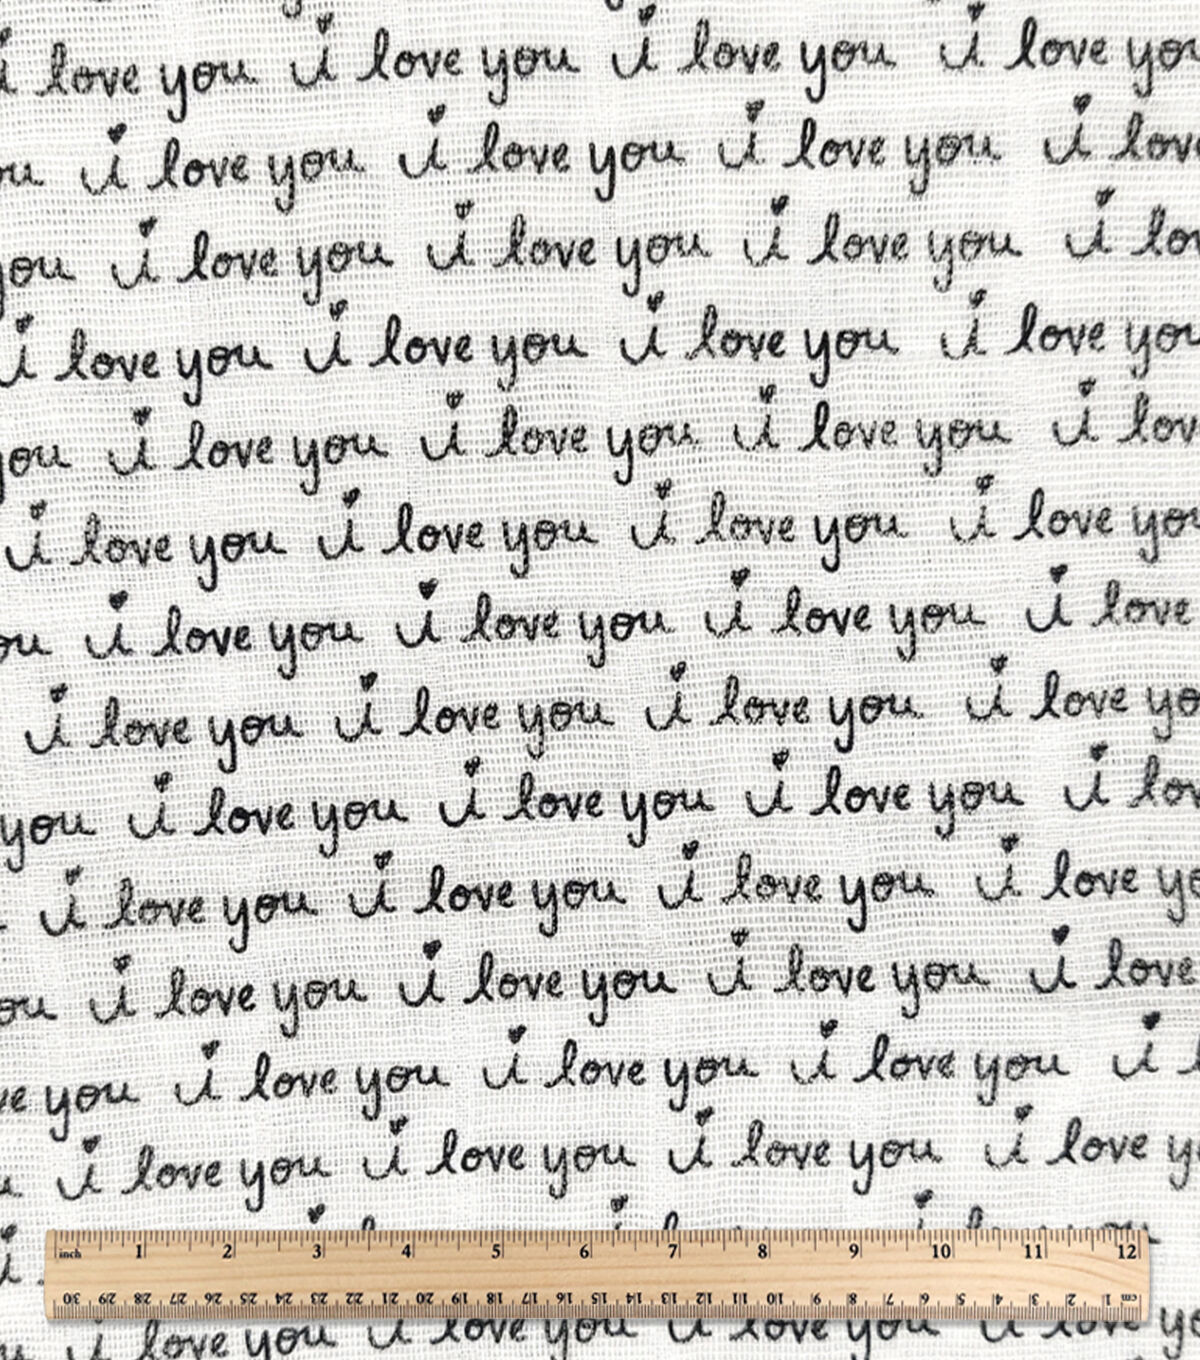 i love you i love you i love you i love you
you i love you i love you i love you i love
you i love you i love you i love you i love
i love you i love you i love you i love you
you i love you i love you i love you i love
i love you i love you i love you i love you
ou i love you i love you i love you i love
i love you i love you i love you i love yo
you i love you i love you i love you i lov
i love you i love you i love you i love y
ou i love you i love you i love you i love
ve you i love you i love you i love you i l
i love you i love you i love you i love y
inch 1 2 3 4 5 6 7 8 9 10 11 12
30 29 28 27 26 25 24 23 22 21 20 19 18 17 16 15 14 13 12 11 10 9 8 7 6 5 4 3 2 1 cm
i love you i love you i love you i love y